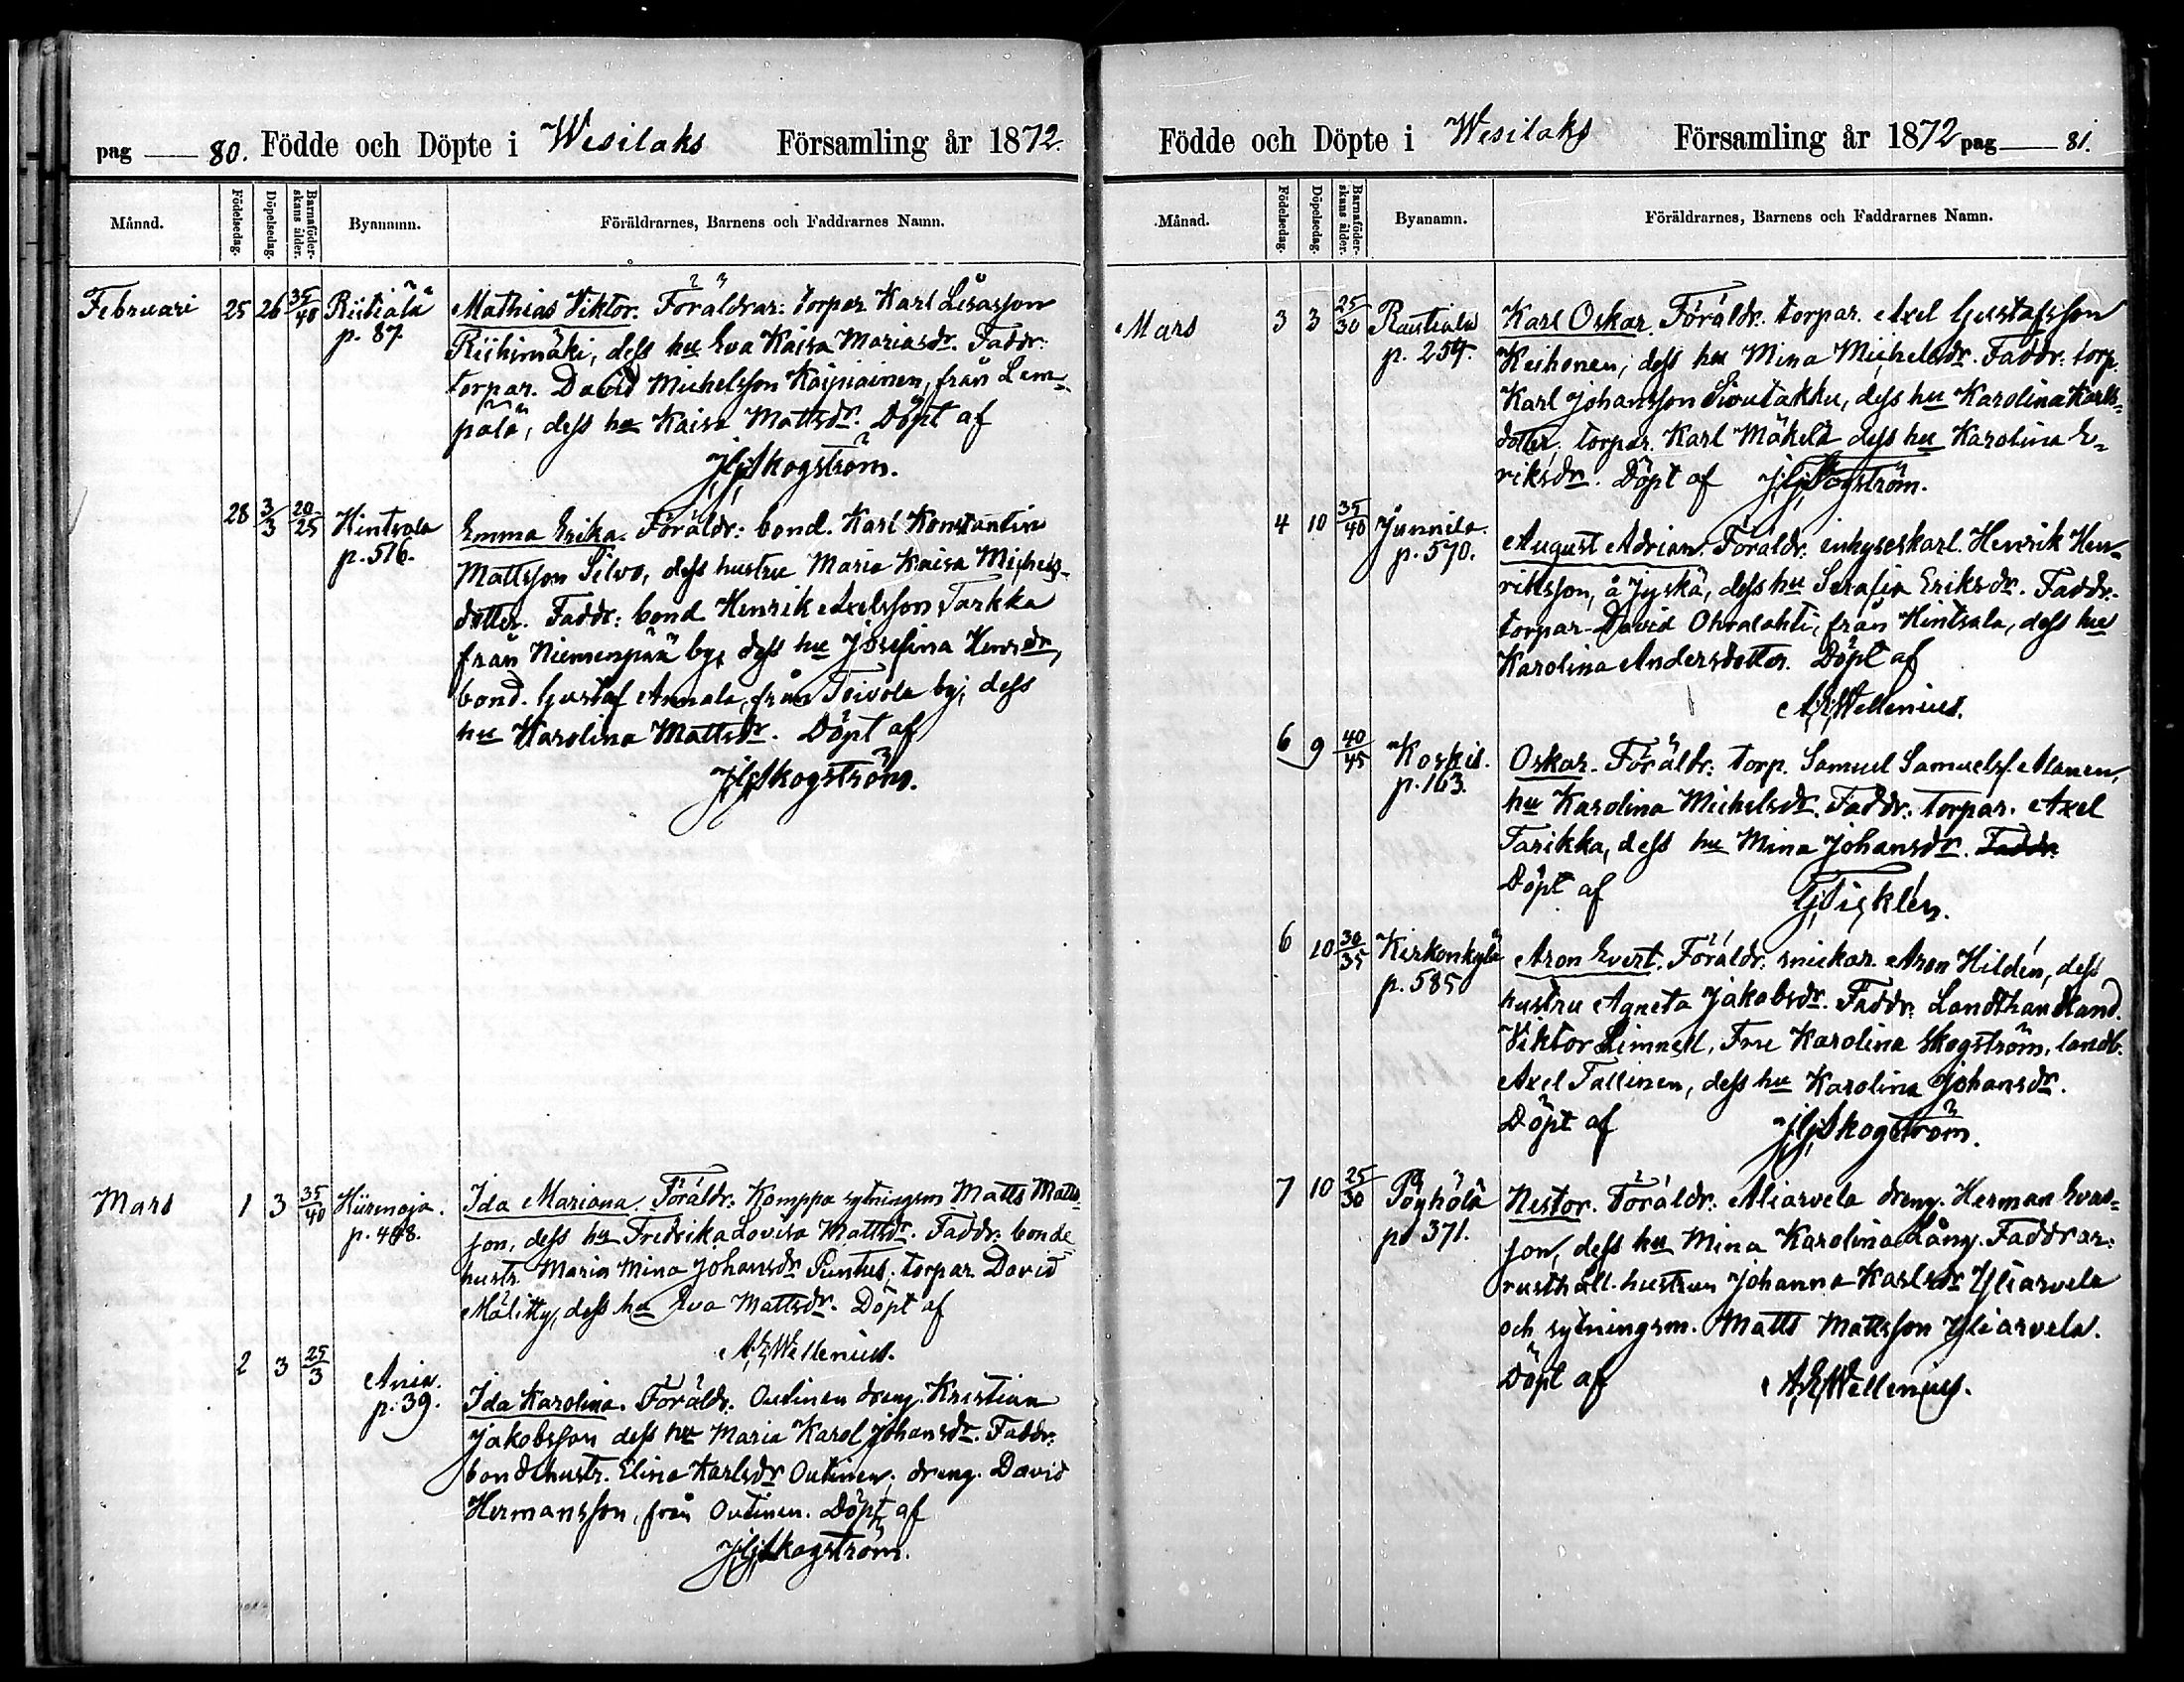 pag 80. Födde och Döpte i Wesilaks Församling år 1872.
Månad. Födelsedag. Döpelsedag. Barnaföderskans ålder. Bynamn. Föräldrarnes, Barnens och Faddrarnes Namn.
Februari 25 26 35/40 Riitialä p. 87.
Mathias Viktor. Föräldrar: torpar Karl
Riihimäki, dess hu Eva Kaisa Mariasdr. Faddr:
torpar. David Michelsson Kaipiainen, från Lem-
pälä, dess hu Kaisa Mattsdr. Döpt af
Skogström.
28 3/3 20/25 Hintsala p. 516.
Emma Erika. Föräldr: bond. Karl Konstantin
Mattsson Silvo, dess hustru Maria Kaisa Michels-
dotter. Faddr: bond Henrik Axelsson Tarkka
från Niemenpää by, dess hu Josefina Henrsdr,
bond. Gustaf Annala, från Toivola by, dess
hu Karolina Mattsdr. Döpt af
Skogström.
Mars 1 3 35/40 Hiirmoja. p. 408.
Ida Mariana. Föräldr: Komppa sytningsm Matts Matts-
son, dess hu Fredrika Lovisa Mattsdr. Faddr: bonde
hustr Maria Mina Johansdr Puntus, torpar David
Mälitty, dess hu Eva Mattsdr. Döpt af
A.E.Wellenius.
2 3 25/3 Ania. p. 39.
Ida Karolina. Föräldr. Outinen dreng. Kristian
Jakobsson dess hu Maria Karol Johansdr. Faddr:
bondehustr. Elina Karlsdr Outinen, dreng. David
Hermansson, från Outinen. Döpt af
Skogström.
Födde och Döpte i Wesilaks Församling år 1872 pag 81.
Månad. Födelsedag. Döpelsedag. Barnaföderskans ålder. Byanamn. Föräldrarnes, Barnens och Faddrarnes Namn.
Mars 3 3 25/30 Rautiala p. 254.
Karl Oskar. Föräldr. torpar. Axel Gustafsson
Keihonen, dess hu Mina Michelsdr. Faddr: torp.
Karl Johansson Sivutakku, dess hu Karolina Karls-
dotter, torpar. Karl Mäkelä dess hu Karolina E-
riksdr. Döpt af Skogström.
4 10 35/40 Junnila. p. 570.
August Adrian. Föräldr. inhyseskarl. Henrik Hen-
riksson, å Jyskä, dess hu Serafia Eriksdr. Faddr.
torpar David Ohralahti, från Hintsala, dess hu
Karolina Andersdotter. Döpt af
A.E.Wellenius.
6 9 40/45 Koskis. p. 163.
Oskar. Föräldr: torp. Samuel Samuelss. Alanen,
hu Karolina Michelsdr. Faddr: torpar. Axel
Tarikka, dess hu Mina Johansdr. Faddr.
Döpt af G.Ticklén.
6 10 30/35 Kirkonkylä p. 585
Aron Evert. Föräldr: snickar. Aron Hildén, dess
hustru Agneta Jakobsdr. Faddr: Landthandland.
Viktor Limnell, Fru Karolina Skogström, landb.
Axel Tallinen, dess hu Karolina Johansdr.
Döpt af Skogström.
7 10 25/30 Pöyhölä p. 371.
Nestor. Föräldr: Aliarvela dreng. Herman Evas-
son, dess hu Mina Karolina Lång. Faddrar:
rusthåll. hustrun Johanna Karlsdr Yliarvela
och sytningsm. Matts Mattsson Yliarvela.
Döpt af A.E.Wellenius.